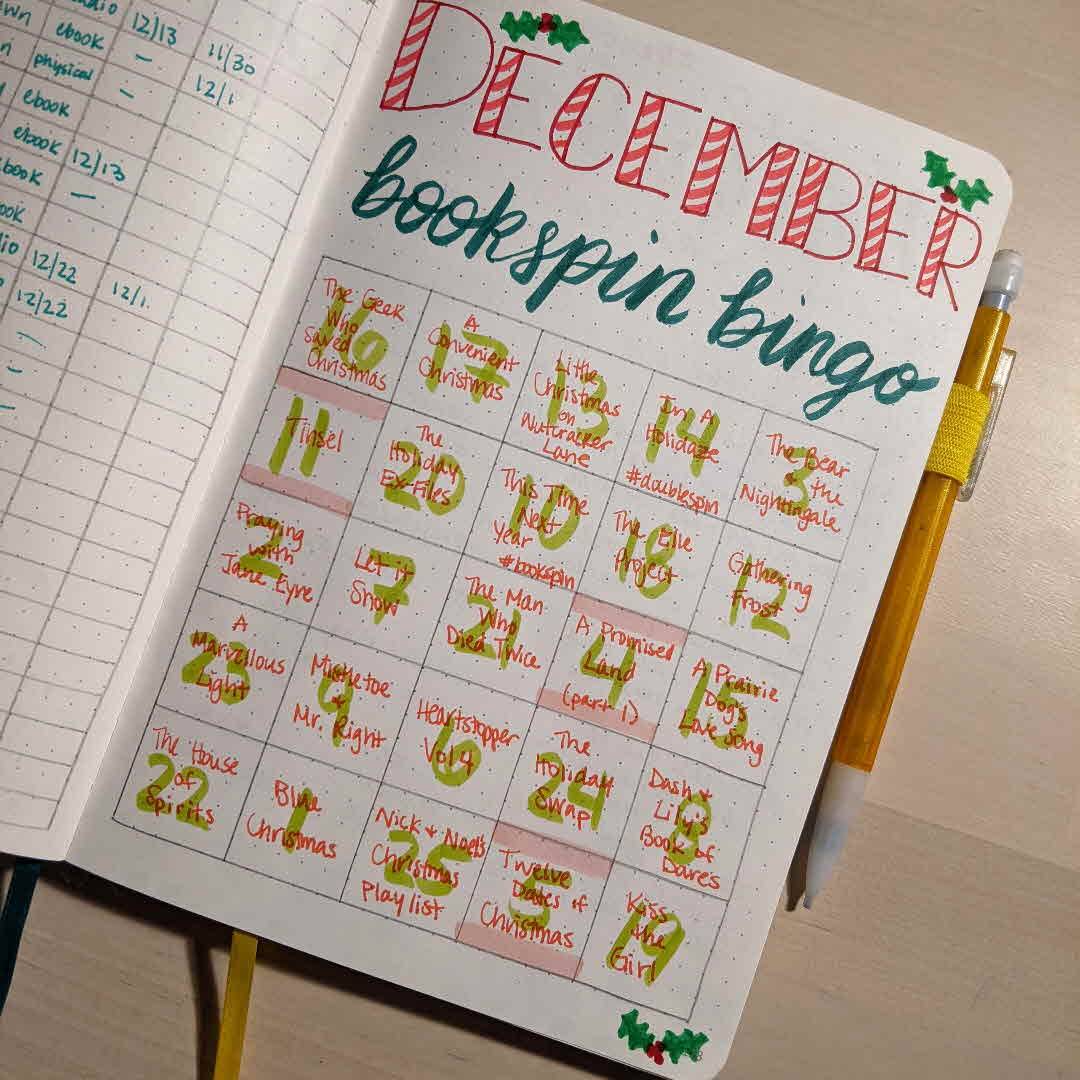 12/13
ebook — 11/30
physical — 12/1
ebook
ebook 12/13
—
12/22
12/22 12/1
DECEMBER
bookspin bingo
16
The Geek
Who
Saved
Christmas
17
A
Convenient
Christmas
13
Little
Christmas
on
Nutcracker
Lane
14
In A
Holidaze
#doublespin
3
The Bear
& the
Nightingale
11
Tinsel
20
The
Holiday
Ex-Files
10
This Time
Next
Year
#bookspin
18
The Elie
Project
12
Gathering
Frost
2
Praying
With
Jane Eyre
7
Let it
Snow
21
The Man
Who
Died Twice
4
A Promised
Land
(part 1)
15
A Prairie
Dog's
Love Song
23
A
Marvellous
Light
9
Mistletoe
&
Mr. Right
6
Heartstopper
Vol 4
24
The
Holiday
Swap
8
Dash &
Lily's
Book of
Dares
22
The House
of
Spirits
1
Blue
Christmas
25
Nick & Noel's
Christmas
Playlist
5
Twelve
Dates of
Christmas
19
Kiss
the
Girl